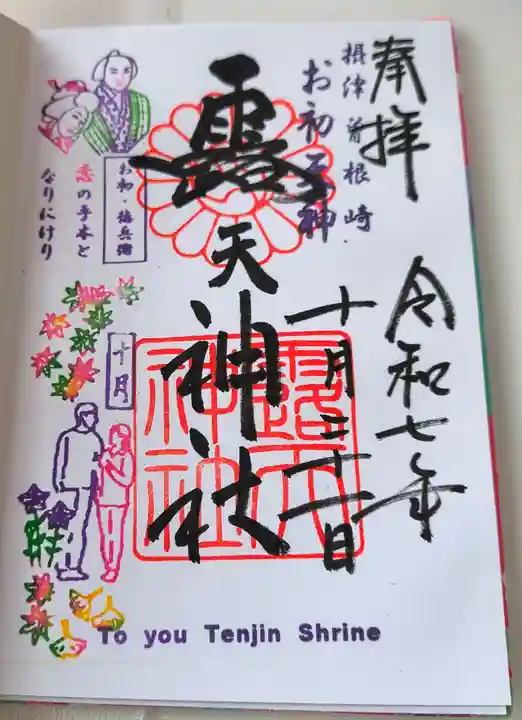 奉拝
令和七年
十月三十一日
摂津曽根崎
お初天神
露天神社
露天
神社
お初・徳兵衛
恋の手本と
なりにけり
十月
To you Tenjin Shrine